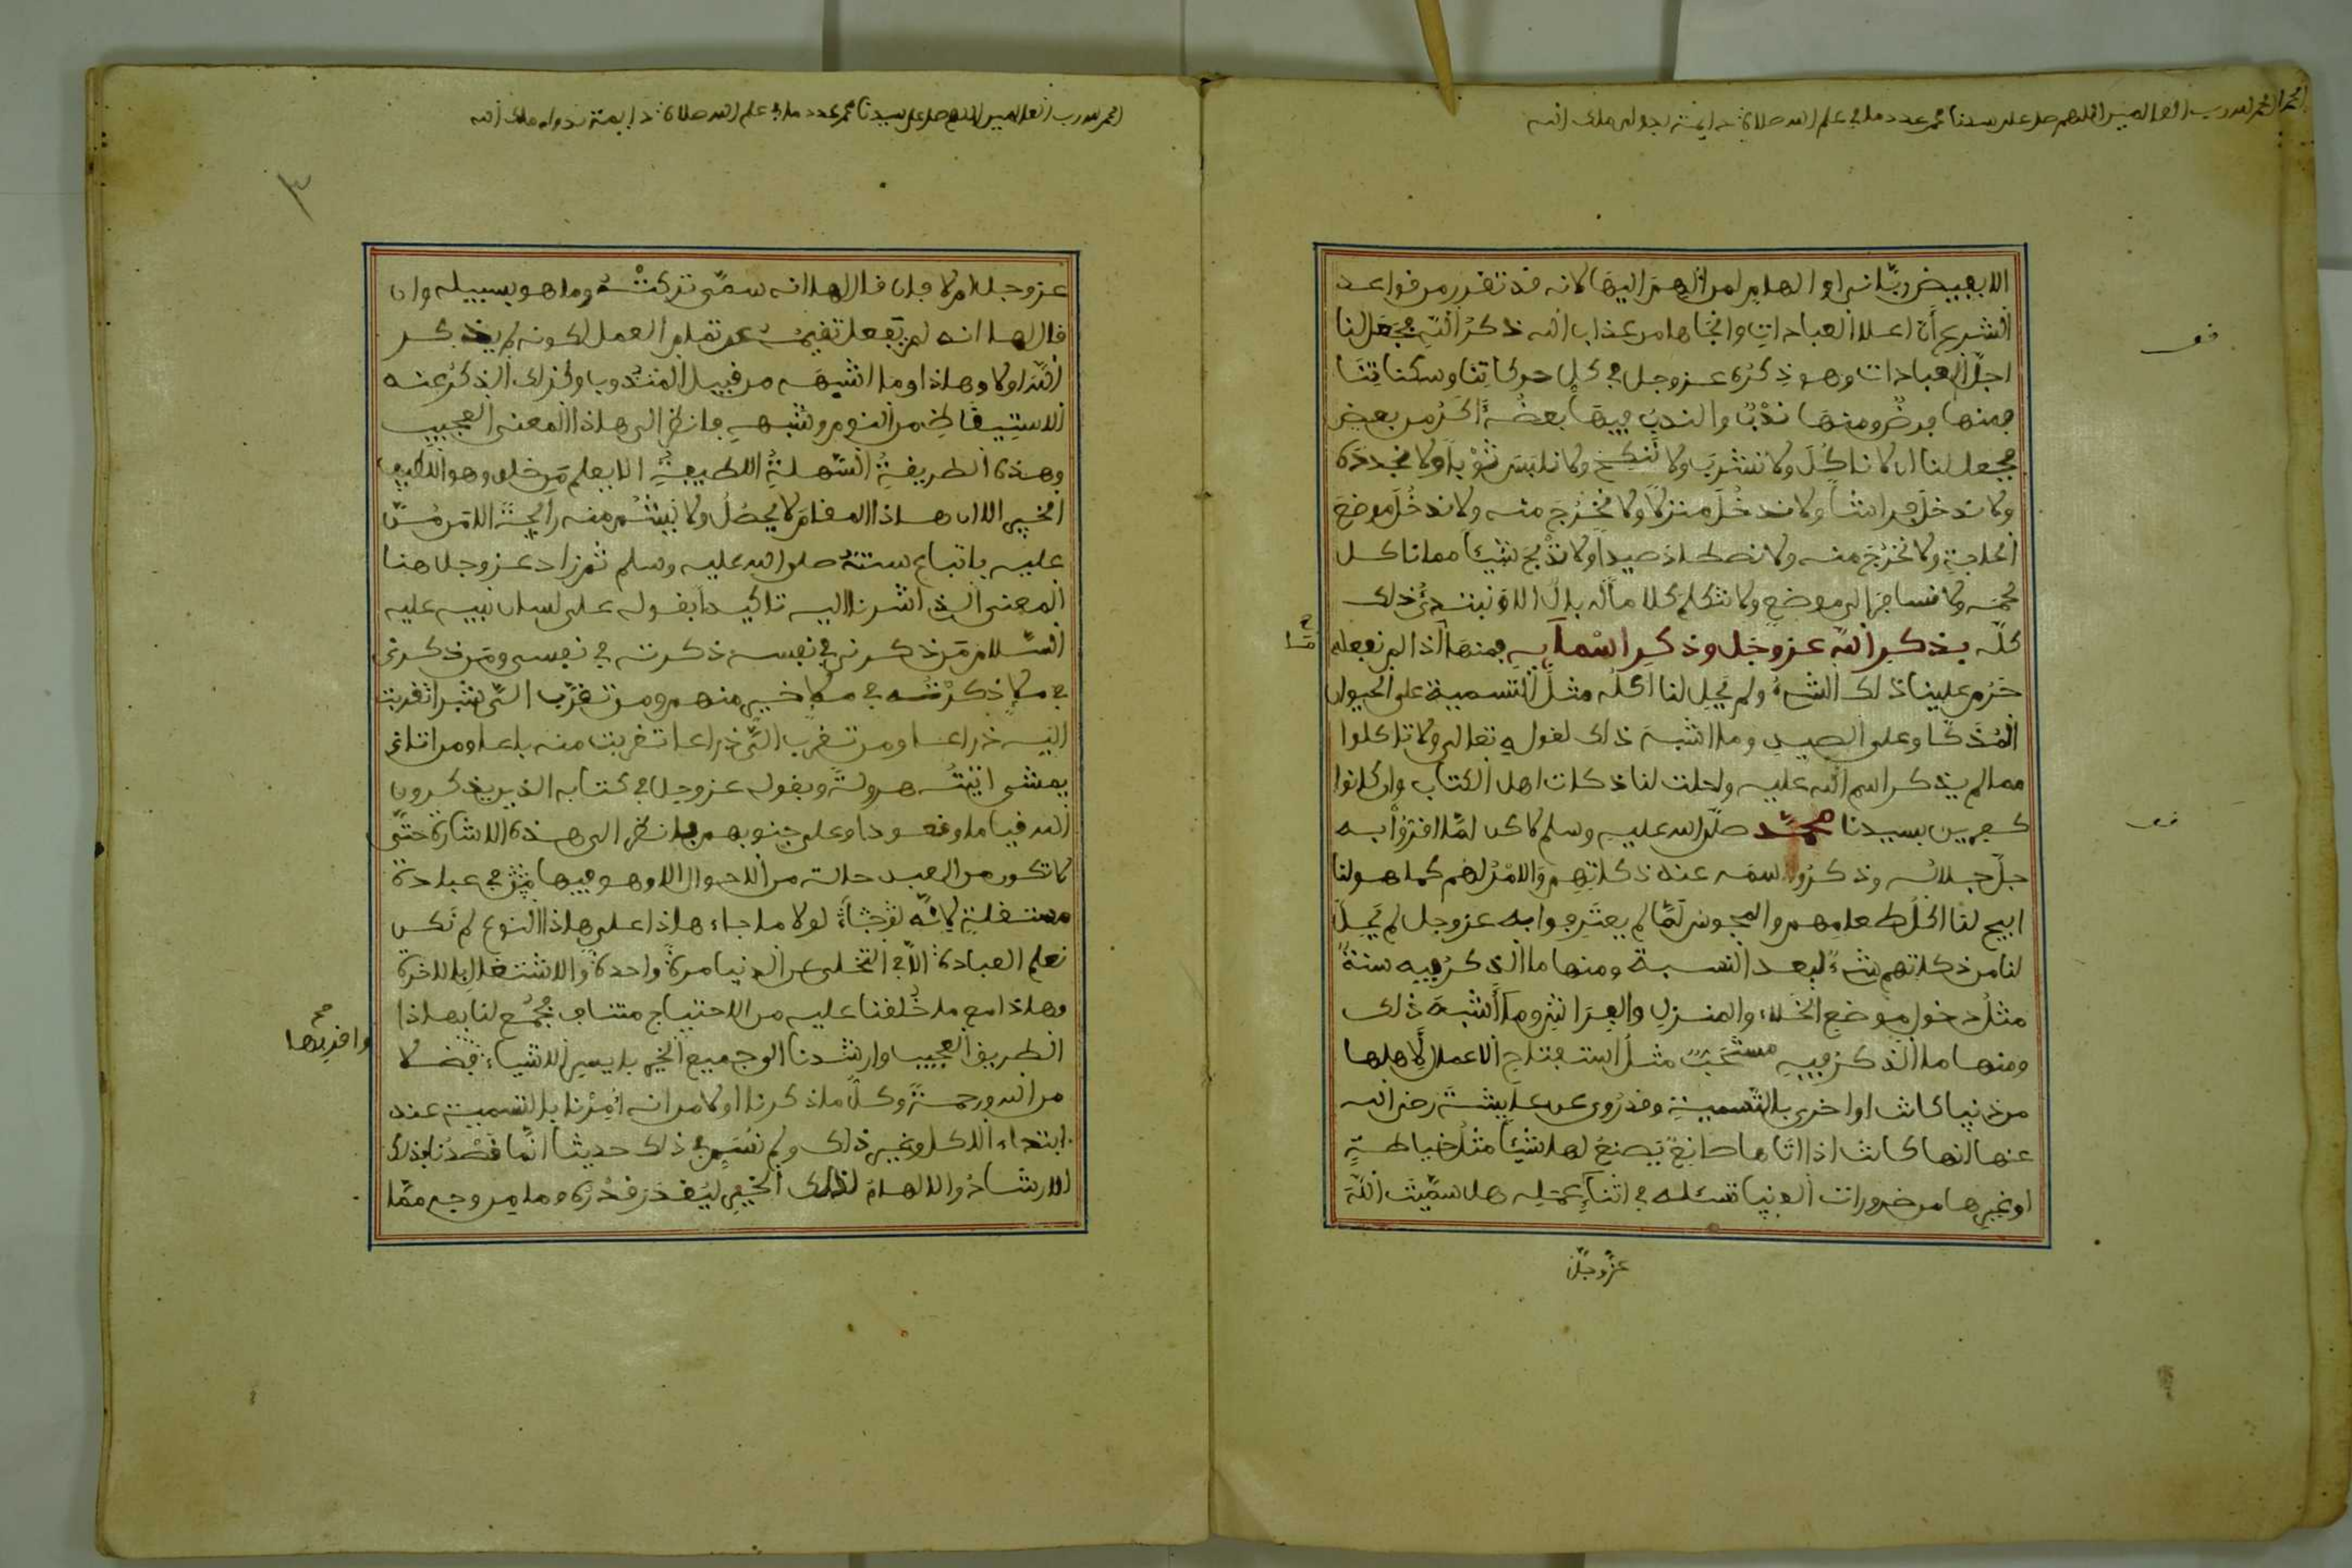 الحمد لله رب العالمين اللهم صل على سيدنا محمد عدد ما في علم الله صلاة دايمة بدوام ملك الله
الا بفيض رباني او الهام لمن الهم اليها لانه قد تقرر من قواعد
الشرع أن اعلا العبادات وانجاها من عذاب الله ذكر الله فجعل لنا
اجل العبادات وهو ذكره عز وجل في كل حركاتنا وسكناتنا
فمنها فرض ومنها ندب والندب فيها بعضه اكد من بعض
فجعل لنا ان لا ناكل ولا نشرب ولا ننكح ولا نلبس ثوبا ولا نجدده
ولا ندخل فراشا ولا ندخل منزلا ولا نخرج منه ولا ندخل موضع
الحاجة ولا نخرج منه ولا نصطاد صيدا ولا نذبح شيئا مما ناكل
لحمه ولا نسافر الى موضع ولا نتكلم كلاما له بال الا ونبتدئ ذلك
كله بذكر الله عز وجل وذكر اسمايه فمنها اذا لم نفعله
حرم علينا ذلك الشيء ولم يحل لنا اكله مثل التسمية على الحيوان
المذكا وعلى الصيد وما اشبه ذلك لقوله تعالى ولا تاكلوا
مما لم يذكر اسم الله عليه واحلت لنا ذكات اهل الكتاب وان كانوا
كفرين بسيدنا محمد صلى الله عليه وسلم لاكن لما اقروا به
جل جلاله وذكروا اسمه عند ذكاتهم والامر لهم كما هو لنا
ابيح لنا اكل طعامهم والمجوس لما لم يعترفوا به عز وجل لم يحل
لنا من ذكاتهم شيء لبعد النسبة ومنها ما الذكر فيه سنة
مثل دخول موضع الخلاء والمنزل والفراش وما أشبه ذلك
ومنها ما الذكر فيه مستحب مثل استفتاح الاعمال لاهلها
من دنيا كانت او اخرى بالتسمية وقد روي عن عايشة رضي الله
عنها انها كانت اذا اتاها صانع يصنع لها شيئا مثل خياطة
او غيرها من ضرورات الدنيا تسئله في اثناء عمله هل سميت الله
عز وجل
الحمد لله رب العالمين اللهم صل على سيدنا محمد عدد ما في علم الله صلاة دايمة بدوام ملك الله
٣
عز وجل ام لا فان قال لها انه سمى تركته وما هو بسبيله وان
قال لها انه لم يفعل تقيمه عن تمام العمل لكونه لم يذكر
الله اولا وهاذا وما اشبهه من قبيل المندوب وكذلك الذكر عند
الاستيقاظ من النوم وشبهه فانظر الى هاذا المعنى العجيب
وهذه الطريقة السهلة اللطيفة الا يعلم من خلق وهو اللطيف
الخبير الا ان هاذا المقام لا يحصل ولا يشم منه رايحة الا من من
عليه باتباع سنته صلى الله عليه وسلم ثم زاد عز وجل هنا
المعنى الذي اشرنا اليه تاكيدا بقوله على لسان نبيه عليه
السلام من ذكرني في نفسه ذكرته في نفسي ومن ذكرني
في ملإ ذكرته في ملإ خير منهم ومن تقرب الي شبرا تقربت
اليه ذراعا ومن تقرب الي ذراعا تقربت منه باعا ومن اتاني
يمشي اتيته هرولة وبقوله عز وجل في كتابه الذين يذكرون
الله قياما وقعودا وعلى جنوبهم فانظر الى هذه الاشارة حتى
لا تكون من العبد حالة من الاحوال الا وهو فيها في عبادة
مستقلة لانه لولا ما جاء هاذا على هاذا النوع لم تكن
تعلم العبادة الا في التخلى عن الدنيا مرة واحدة والاشتغال بالاخرة
وهاذا مع ما خلفنا عليه من الاحتياج متناف فجمع لنا بهاذا
الطريق العجيب وارشدنا الى جميع الخير بايسر الاشياء فضلا
وافربها
صح
من الله ورحمة وكل ما ذكرنا اولا من انه أمرنا بالتسمية عند
ابتداء الاكل وغير ذلك ولم نسم في ذلك حديثا انما قصدنا بذلك
الارشاد والالهام لذلك الخير ليقدر قدره وما من وجه مما